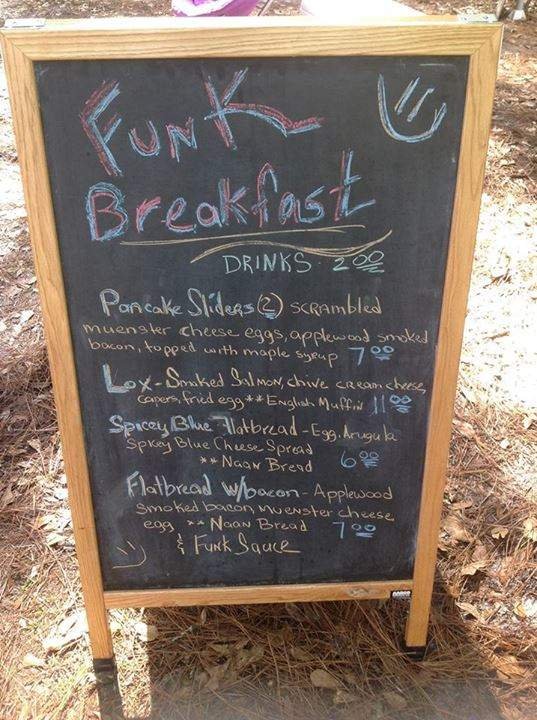 Funk
Breakfast
DRINKS 2.00
Pancake Sliders (2) scrambled
muenster cheese eggs, applewood smoked
bacon, topped with maple syrup 7.00
Lox - Smoked Salmon, chive cream cheese,
capers, fried egg ** English Muffin 11.00
Spicey Blue Flatbread - Egg, Arugula
Spicey Blue Cheese Spread
** Naan Bread 6.00
Flatbread w/bacon - Applewood
smoked bacon, muenster cheese
egg ** Naan Bread 7.00
& Funk Sauce